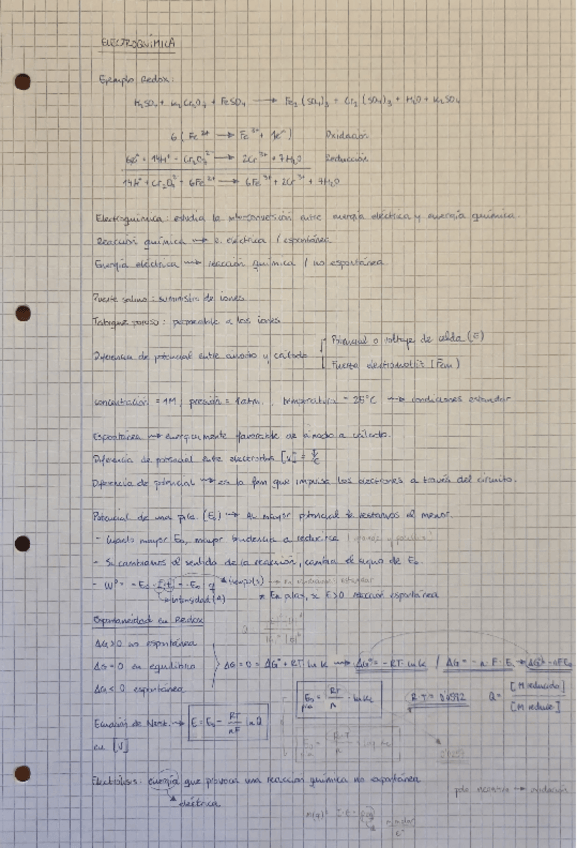 ELECTROQUÍMICA
Ejemplo Redox:
H₂SO₄ + K₂Cr₂O₇ + FeSO₄ → Fe₂(SO₄)₃ + Cr₂(SO₄)₃ + H₂O + K₂SO₄
6(Fe²⁺ → Fe³⁺ + 1e⁻) Oxidación
6e⁻ + 14H⁺ + Cr₂O₇²⁻ → 2Cr³⁺ + 7H₂O Reducción
14H⁺ + Cr₂O₇²⁻ + 6Fe²⁺ → 6Fe³⁺ + 2Cr³⁺ + 7H₂O
Electroquímica: estudia la interconversión entre energía eléctrica y energía química.
Reacción química → e. eléctrica / espontánea
Energía eléctrica → reacción química / no espontánea
Puente salino: suministro de iones
Tabique poroso: permeable a los iones
Diferencia de potencial entre ánodo y cátodo
Potencial o voltaje de celda (E)
Fuerza electromotriz (Fem)
Concentración = 1M, presión = 1atm, temperatura = 25°C → condiciones estándar
Espontánea → energicamente favorable de ánodo a cátodo.
Diferencia de potencial entre electrodos [V] = J/C
Diferencia de potencial → es la fem que impulsa los electrones a través del circuito.
Potencial de una pila (E₀) → al mayor potencial le restamos el menor.
- Cuanto mayor E₀, mayor tendencia a reducirse
- Si cambiamos el sentido de la reacción, cambia el signo de E₀.
- tiempo(s)
intensidad (A) * En pilas, si E>0 reacción espontánea
Espontaneidad en Redox
ΔG>0 no espontánea
ΔG=0 en equilibrio
ΔG<0 espontánea
ΔG=0=ΔG°+RT·lnK → ΔG°=-RT·lnK / ΔG=-n·F·E
Ecuación de Nerst → E=E₀-RT/nF lnQ
en [V]
Electrólisis: energía que provoca una reacción química no espontánea
eléctrica